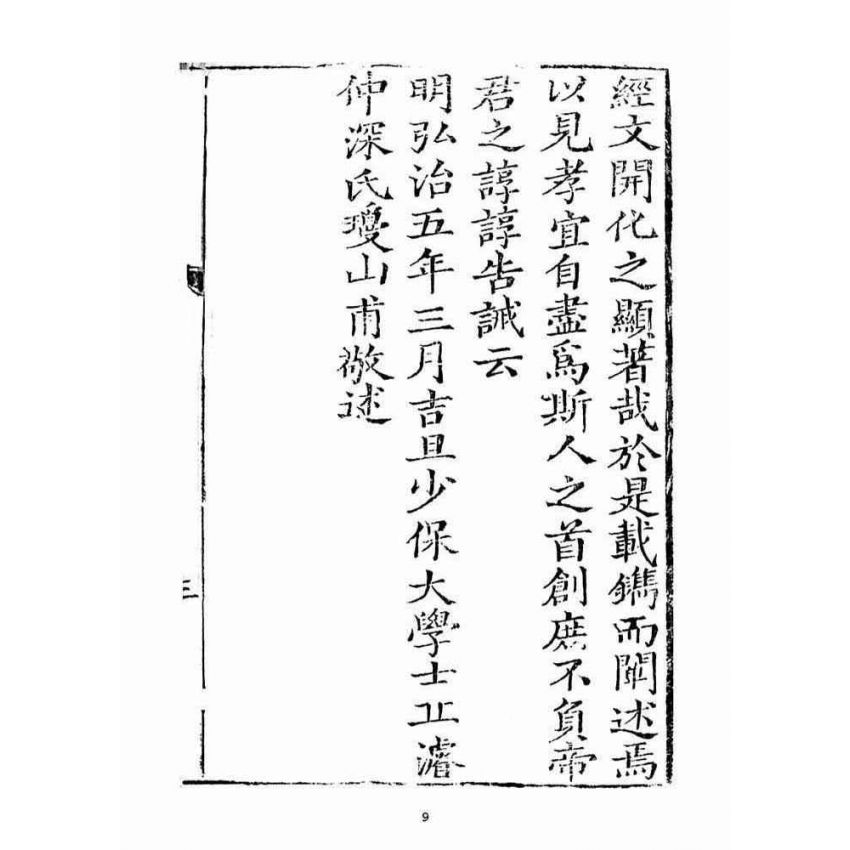 經文開化之顯著哉於是載鐫而闡述焉
以見孝宜自盡爲斯人之首創庶不負帝
君之諄諄告誡云
明弘治五年三月吉旦少保大學士丘濬
仲深氏瓊山甫敬述
三
9